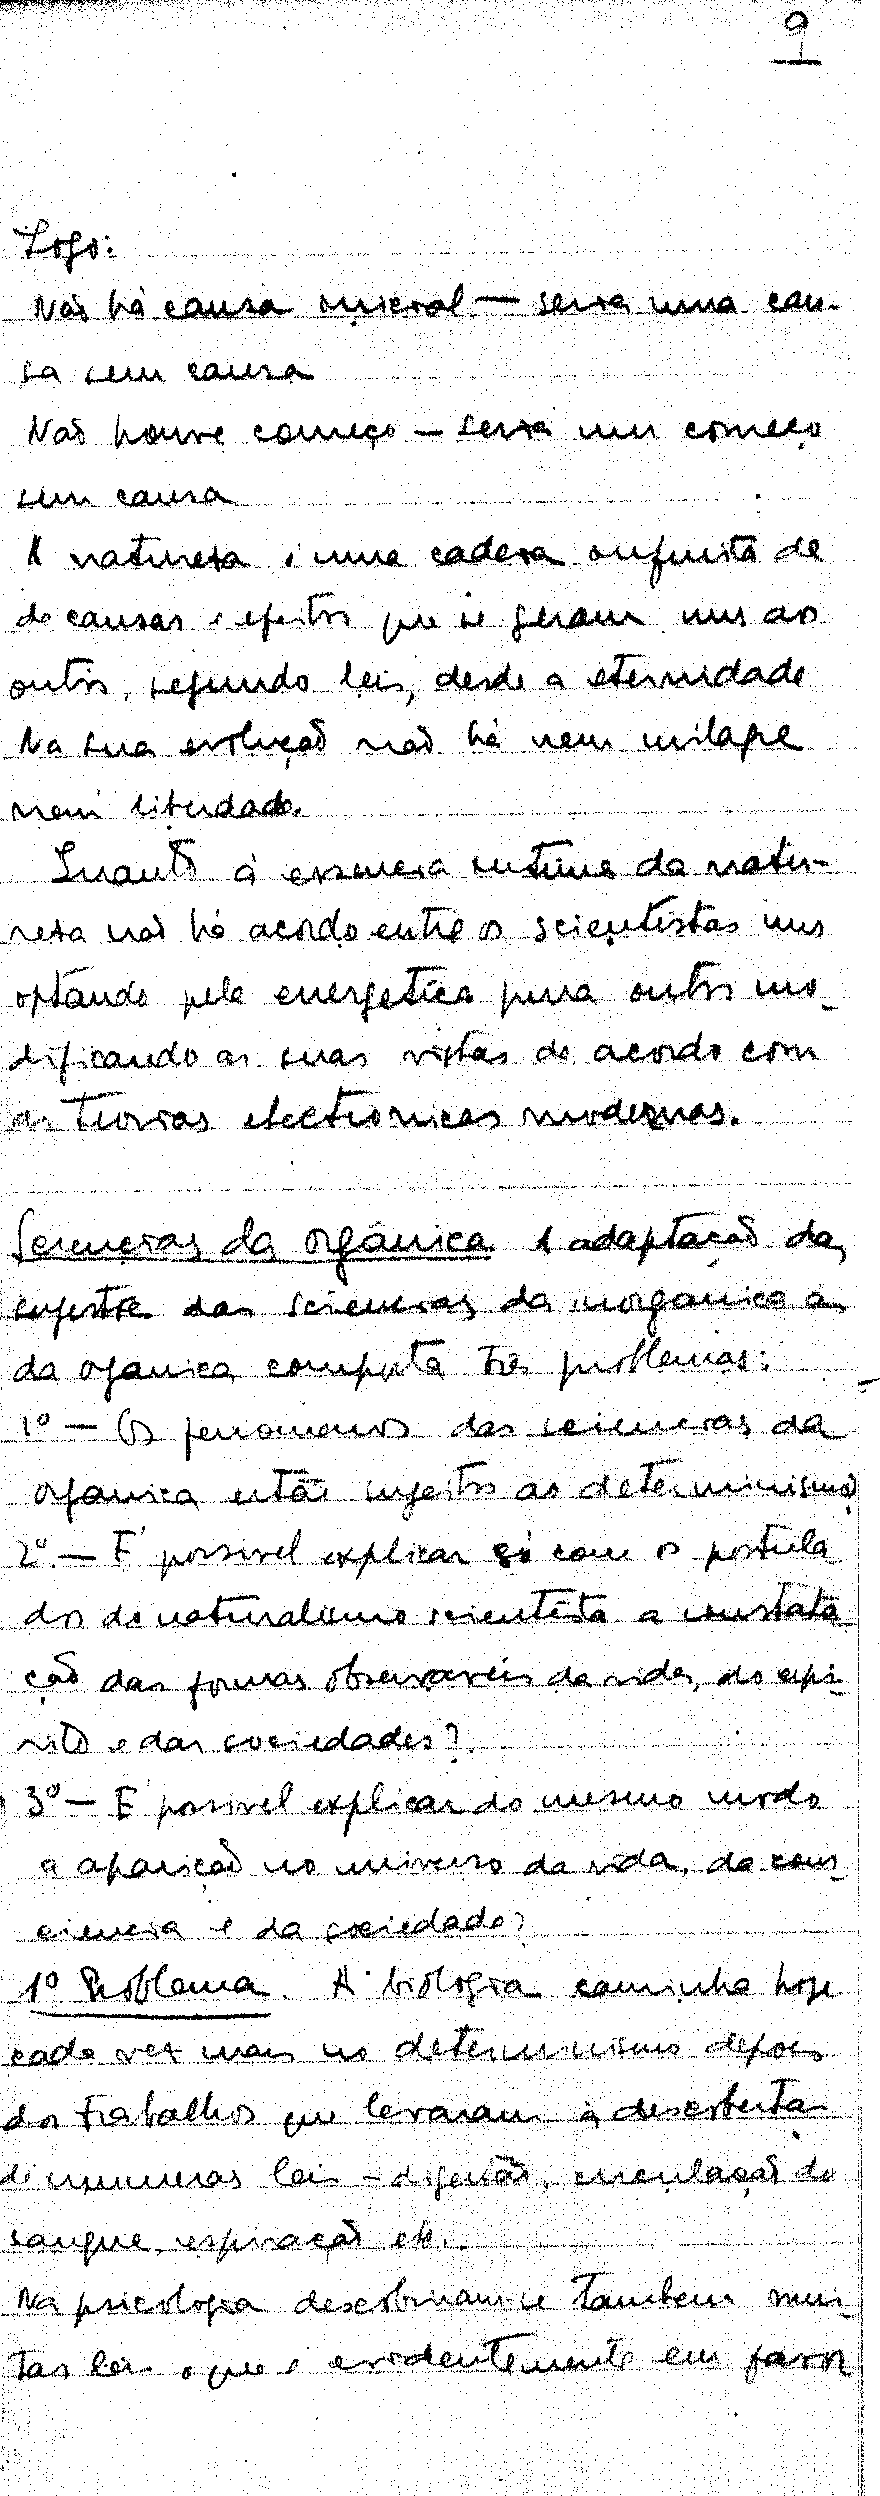 9
Logo:
Não há causa inicial — seria uma cau-
sa sem causa
Não houve começo — seria um começo
sem causa
A natureza é uma cadeia infinita de
de causas e efeitos que se geram uns aos
outros, segundo leis, desde a eternidade
Na sua evolução não há nem milagre
nem liberdade.
Quanto á essencia intima da natu-
reza não há acordo entre os scientistas uns
optando pela energetica pura outros mo-
dificando as suas vistas de acordo com
as teorias electronicas modernas.
Sciencias da orgânica A adaptação da
das sciencias da inorganica ás
da organica comporta três problemas:
1º — Os fenomenos das sciencias da
organica estão sujeitos ao determinismo
2º — É possivel explicar só com os postula
dos do naturalismo scientista a constata-
ção das formas observaveis da vida, do espi-
rito e das sociedades?
3º — É possivel explicar do mesmo modo
a aparição no universo da vida, da cons-
ciencia e da sociedade?
1º Problema. A biologia caminha hoje
cada vez mais no determinismo depois
dos trabalhos que levaram á descoberta
de inumeras leis — digestão, circulação do
sangue, respiração etc.
Na psicologia descobriram-se tambem mui-
tas leis o que é evidentemente em favor